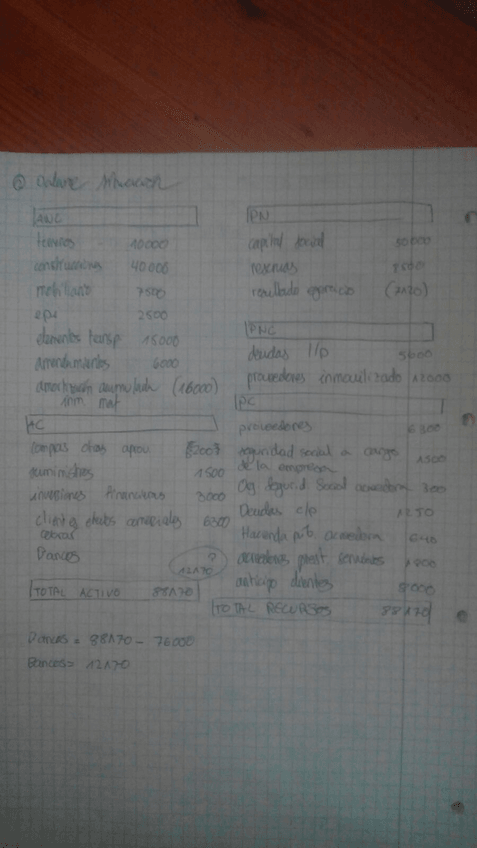 ② Balance situación
ANC
terrenos 10000
construcciones 40000
mobiliario 7500
epi 2500
elementos transp 15000
arrendamientos 6000
amortización acumulada (16000)
inm. mat
AC
compras otros aprov
suministros 1500
inversiones financieras 3000
clientes efectos comerciales 6500
cobrar
Bancos ?
12170
TOTAL ACTIVO 88170
Bancos = 88170 - 76000
Bancos = 12170
PN
capital social 50000
reservas
resultado ejercicio (2120)
PNC
deudas l/p 5600
proveedores inmovilizado 12000
PC
proveedores 6300
seguridad social a cargo 1500
de la empresa
Org Seguridad Social acreedora 300
Deudas c/p 1250
Hacienda púb acreedora 640
acreedores prest servicios
anticipo clientes
TOTAL RECURSOS 88170